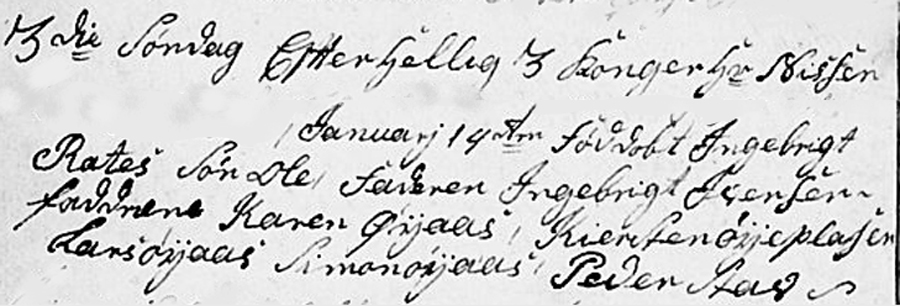 3 die Söndag Efter Hellig 3 Konger Hr Nissen
Januarj 14 den Föddobt Ingebrigt
Rates Sön Ole, Faderen Ingebrigt Iversen
faddrene Karen Øyaas, Kiersten öyeplassen
Lars öyaas Simon öyaas, Peder Stav